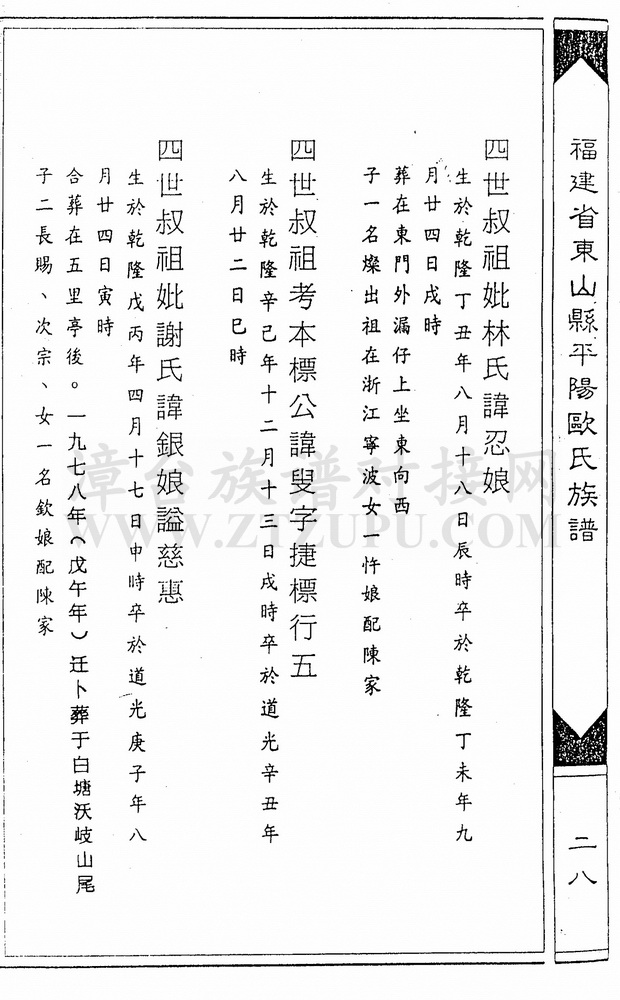 福建省東山縣平陽歐氏族譜
二八
四世叔祖妣林氏諱忍娘
生於乾隆丁丑年八月十八日辰時卒於乾隆丁未年九
月廿四日戌時
葬在東門外漏仔上坐東向西
子一名燦出祖在浙江寧波女一忤娘配陳家
四世叔祖考本標公諱叟字捷標行五
生於乾隆辛巳年十二月十三日戌時卒於道光辛丑年
八月廿二日巳時
四世叔祖妣謝氏諱銀娘謚慈惠
生於乾隆戊丙年四月十七日申時卒於道光庚子年八
月廿四日寅時
合葬在五里亭後。一九七八年(戊午年)迁卜葬于白塘沃岐山尾
子二長賜、次宗、女一名欽娘配陳家
漳台族谱对接网
WWW.ZTZUPU.COM